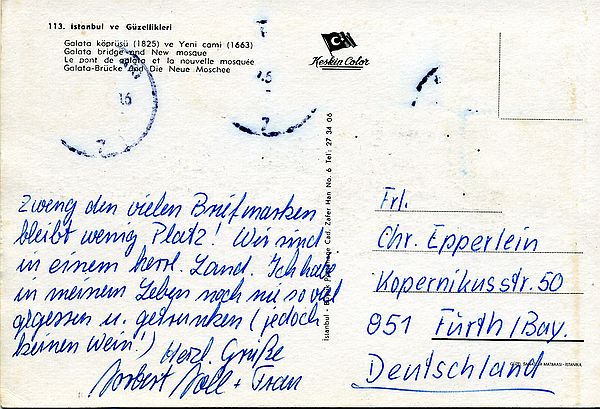 113. İstanbul ve Güzellikleri
Galata köprüsü (1825) ve Yeni cami (1663)
Galata bridge and New mosque
Le pont de galata et la nouvelle mosquée
Galata-Brücke und Die Neue Moschee
Keskin Color
Zweng den vielen Briefmarken
bleibt wenig Platz! Wir sind
in einem herrl. Land. Ich habe
in meinem Leben noch nie so viel
gegessen u. getrunken (jedoch
keinen Wein!) Herzl. Grüße
Norbert + Frau
İstanbul - Cad. Zafer Han No. 6 Tel: 27 34 06
Frl.
Chr. Epperlein
Kopernikusstr. 50
851 Fürth/Bay.
Deutschland
MATBAASI - İSTANBUL